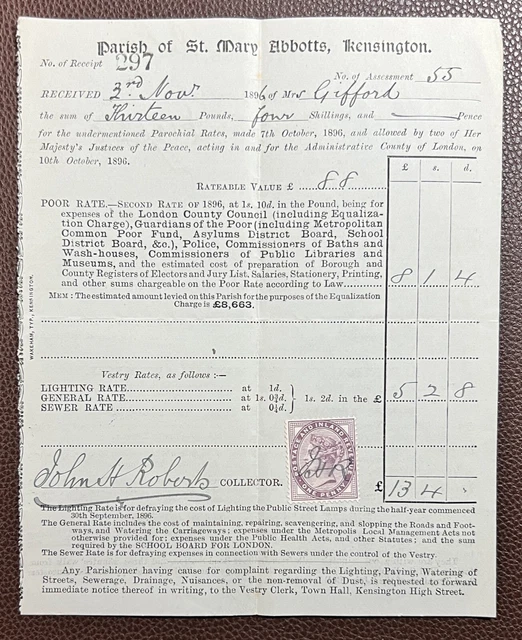 Parish of St. Mary Abbotts, Kensington.
No. of Receipt 297
No. of Assessment 55
RECEIVED 3rd Novr 1896 of Mrs Gifford
the sum of Thirteen Pounds, four Shillings, and Pence
for the undermentioned Parochial Rates, made 7th October, 1896, and allowed by two of Her
Majesty's Justices of the Peace, acting in and for the Administrative County of London, on
10th October, 1896.
£ s. d.
RATEABLE VALUE £ 88
POOR RATE.—SECOND RATE OF 1896, at 1s. 10d. in the Pound, being for
expenses of the London County Council (including Equaliza-
tion Charge), Guardians of the Poor (including Metropolitan
Common Poor Fund, Asylums District Board, School
District Board, &c.), Police, Commissioners of Baths and
Wash-houses, Commissioners of Public Libraries and
Museums, and the estimated cost of preparation of Borough and
County Registers of Electors and Jury List, Salaries, Stationery, Printing,
and other sums chargeable on the Poor Rate according to Law 8 1 4
MEM: The estimated amount levied on this Parish for the purposes of the Equalization
Charge is £8,663.
WAKEHAM, TYP., KENSINGTON.
Vestry Rates, as follows :—
LIGHTING RATE at 1d.
GENERAL RATE at 1s. 0¾d. 1s. 2d. in the £ 5 2 8
SEWER RATE at 0¼d.
POSTAGE AND INLAND REVENUE
ONE PENNY
John H Roberts COLLECTOR. £ 13 4 .
The Lighting Rate is for defraying the cost of Lighting the Public Street Lamps during the half-year commenced
30th September, 1896.
The General Rate includes the cost of maintaining, repairing, scavengering, and slopping the Roads and Foot-
ways, and Watering the Carriageways; expenses under the Metropolis Local Management Acts not
otherwise provided for; expenses under the Public Health Acts, and other Statutes; and the sum
required by the SCHOOL BOARD FOR LONDON.
The Sewer Rate is for defraying expenses in connection with Sewers under the control of the Vestry.
Any Parishioner having cause for complaint regarding the Lighting, Paving, Watering of
Streets, Sewerage, Drainage, Nuisances, or the non-removal of Dust, is requested to forward
immediate notice thereof in writing, to the Vestry Clerk, Town Hall, Kensington High Street.